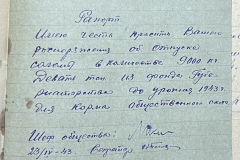 Рапорт
Имею честь просить Вашего
распоряжения об отпуске
соломы в количестве 9000 кг.
Девять тон из фонда
до урожая 1943 г.
для корма общественного скота
Шеф общества:
23/IV-43